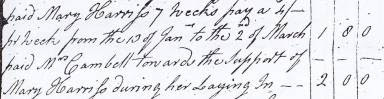 paid Mary Harriss 7 weeks pay a 4/-
pr Week from the 13 of Jan to the 2d of March 1 8 0
paid Mrs Cambell toward the Support of
Mary Harriss during her Laying In -- 2 0 0